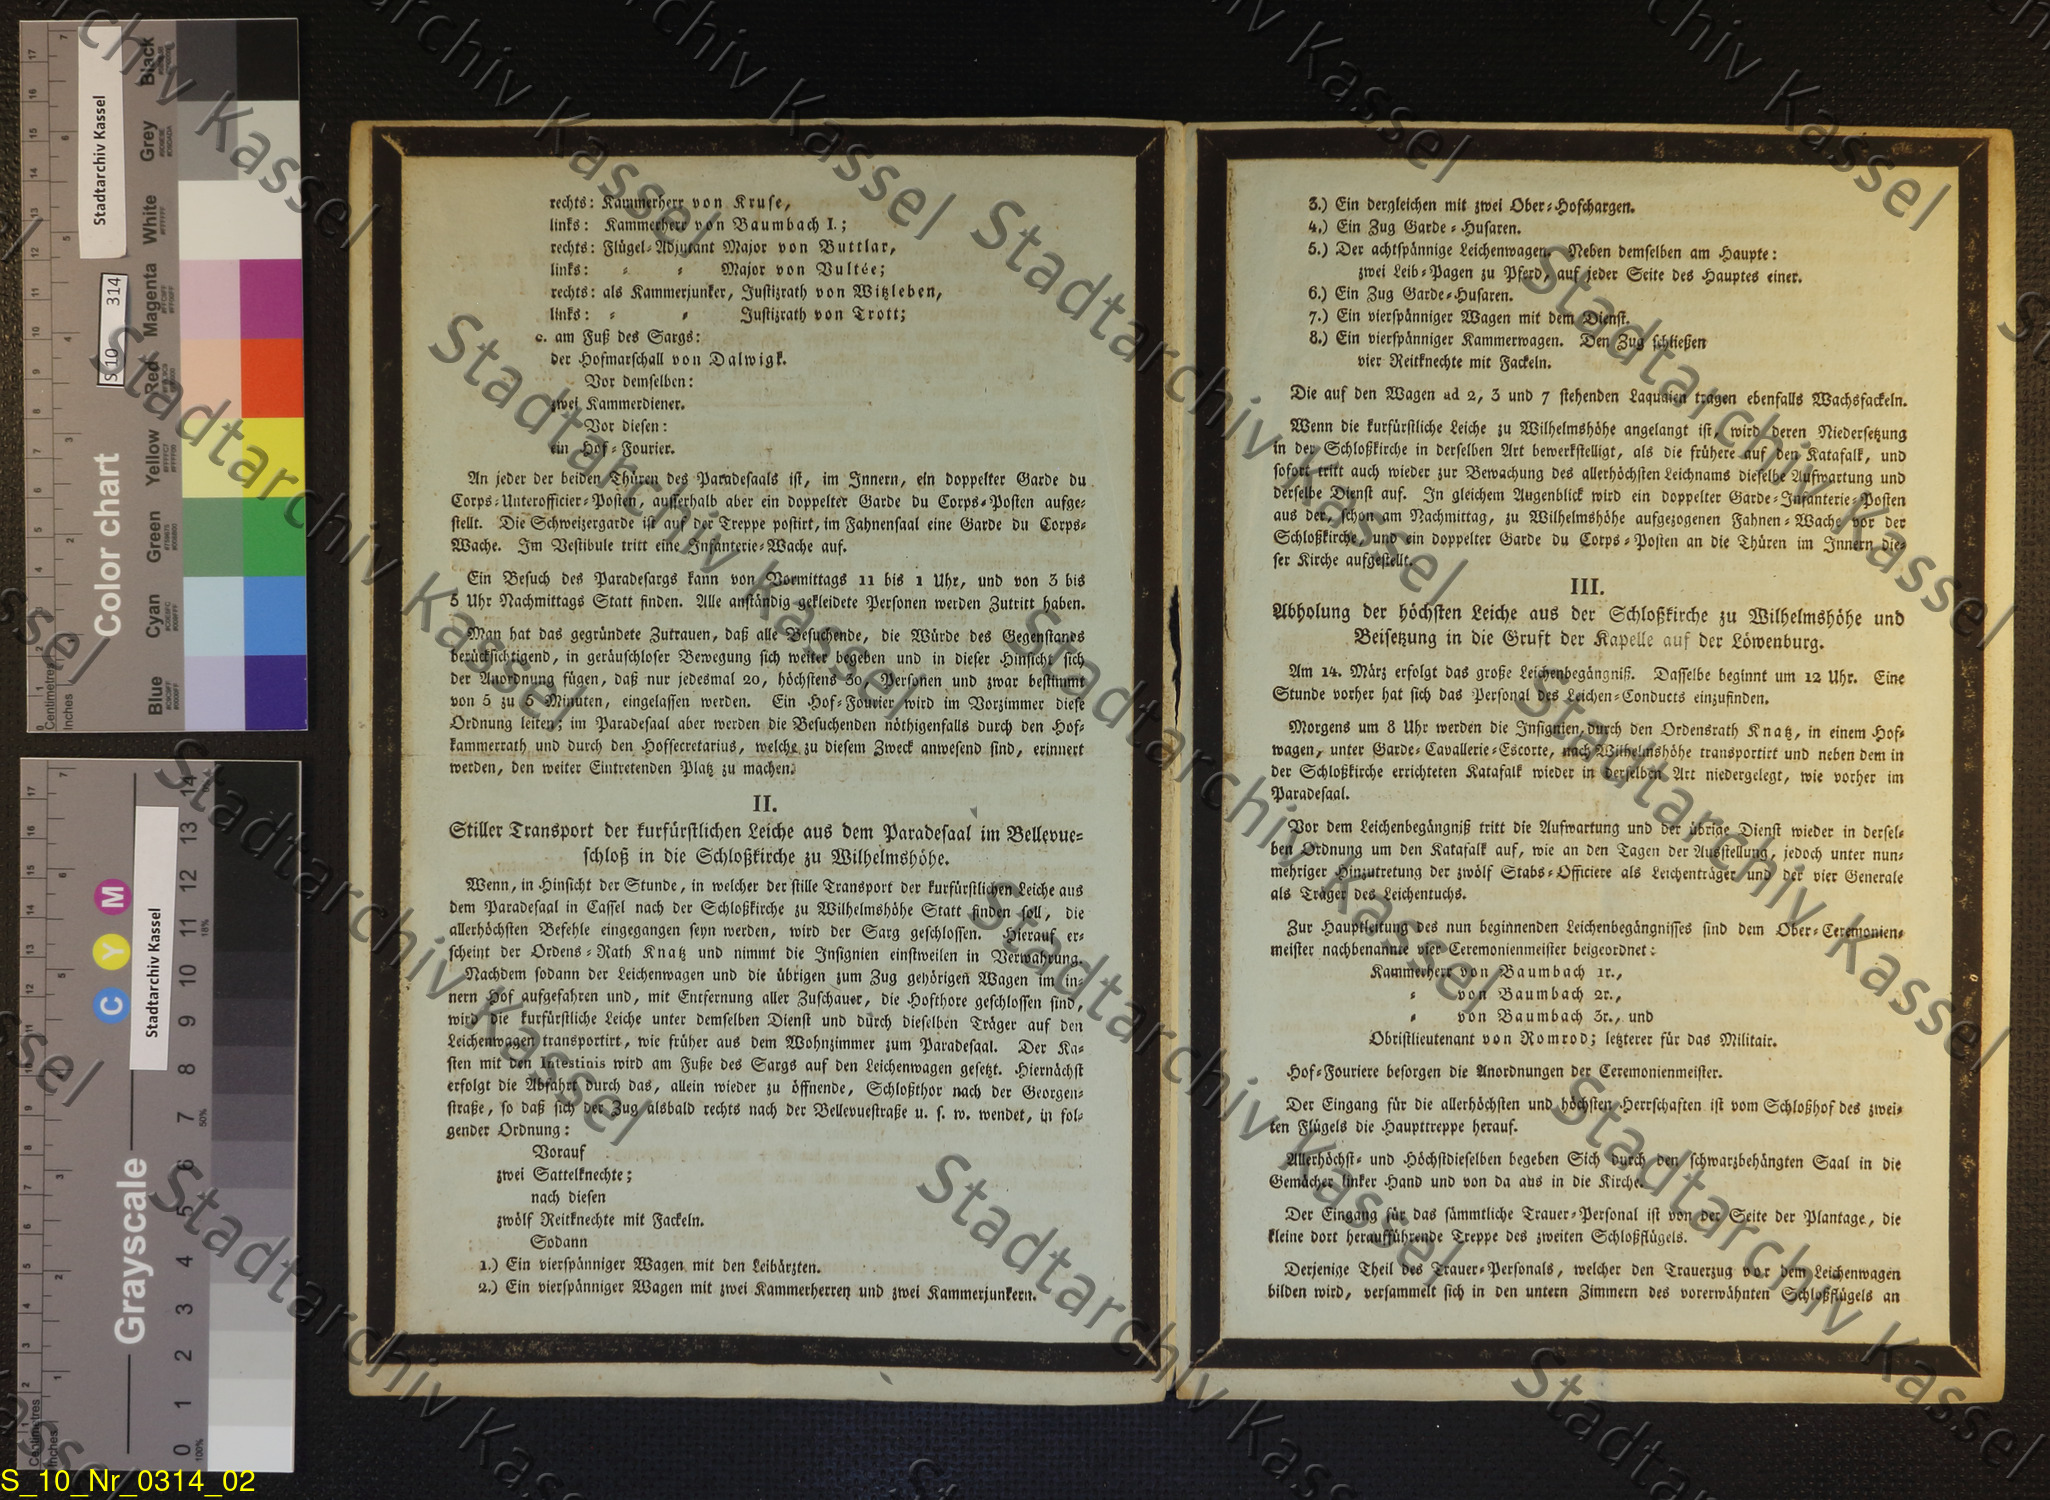 rechts: Kammerherr von Kruse,
links: Kammerherr von Baumbach I.;
rechts: Flügel-Adjutant Major von Buttlar,
links: „ „ Major von Bultée;
rechts: als Kammerjunker, Justizrath von Witzleben,
links: „ „ Justizrath von Trott;
c. am Fuß des Sargs:
der Hofmarschall von Dalwigk.
Vor demselben:
zwei Kammerdiener.
Vor diesen:
ein Hof-Fourier.
An jeder der beiden Thüren des Paradesaals ist, im Innern, ein doppelter Garde du
Corps-Unterofficier-Posten, ausserhalb aber ein doppelter Garde du Corps-Posten aufge-
stellt. Die Schweizergarde ist auf der Treppe postirt, im Fahnensaal eine Garde du Corps-
Wache. Im Vestibule tritt eine Infanterie-Wache auf.
Ein Besuch des Paradesargs kann von Vormittags 11 bis 1 Uhr, und von 3 bis
5 Uhr Nachmittags Statt finden. Alle anständig gekleidete Personen werden Zutritt haben.
Man hat das gegründete Zutrauen, daß alle Besuchende, die Würde des Gegenstands
berücksichtigend, in geräuschloser Bewegung sich weiter begeben und in dieser Hinsicht sich
der Anordnung fügen, daß nur jedesmal 20, höchstens 30, Personen und zwar bestimmt
von 5 zu 5 Minuten, eingelassen werden. Ein Hof-Fourier wird im Vorzimmer diese
Ordnung leiten; im Paradesaal aber werden die Besuchenden nöthigenfalls durch den Hof-
kammerrath und durch den Hofsecretarius, welche zu diesem Zweck anwesend sind, erinnert
werden, den weiter Eintretenden Platz zu machen.
II.
Stiller Transport der kurfürstlichen Leiche aus dem Paradesaal im Bellevue-
schloß in die Schloßkirche zu Wilhelmshöhe.
Wenn, in Hinsicht der Stunde, in welcher der stille Transport der kurfürstlichen Leiche aus
dem Paradesaal in Cassel nach der Schloßkirche zu Wilhelmshöhe Statt finden soll, die
allerhöchsten Befehle eingegangen seyn werden, wird der Sarg geschlossen. Hierauf er-
scheint der Ordens-Rath Knatz und nimmt die Insignien einstweilen in Verwahrung.
Nachdem sodann der Leichenwagen und die übrigen zum Zug gehörigen Wagen im in-
nern Hof aufgefahren und, mit Entfernung aller Zuschauer, die Hofthore geschlossen sind,
wird die kurfürstliche Leiche unter demselben Dienst und durch dieselben Träger auf den
Leichenwagen transportirt, wie früher aus dem Wohnzimmer zum Paradesaal. Der Ka-
sten mit den Intestinis wird am Fuße des Sargs auf den Leichenwagen gesetzt. Hiernächst
erfolgt die Abfahrt durch das, allein wieder zu öffnende, Schloßthor nach der Georgen-
straße, so daß sich der Zug alsbald rechts nach der Bellevuestraße u. s. w. wendet, in fol-
gender Ordnung:
Vorauf
zwei Sattelknechte;
nach diesen
zwölf Reitknechte mit Fackeln.
Sodann
1.) Ein vierspänniger Wagen mit den Leibärzten.
2.) Ein vierspänniger Wagen mit zwei Kammerherren und zwei Kammerjunkern.
3.) Ein dergleichen mit zwei Ober-Hofchargen.
4.) Ein Zug Garde-Husaren.
5.) Der achtspännige Leichenwagen. Neben demselben am Haupte:
zwei Leib-Pagen zu Pferd, auf jeder Seite des Hauptes einer.
6.) Ein Zug Garde-Husaren.
7.) Ein vierspänniger Wagen mit dem Dienst.
8.) Ein vierspänniger Kammerwagen. Den Zug schließen
vier Reitknechte mit Fackeln.
Die auf den Wagen ad 2, 3 und 7 stehenden Laquaien tragen ebenfalls Wachsfackeln.
Wenn die kurfürstliche Leiche zu Wilhelmshöhe angelangt ist, wird deren Niedersetzung
in der Schloßkirche in derselben Art bewerkstelligt, als die frühere auf den Katafalk, und
sofort tritt auch wieder zur Bewachung des allerhöchsten Leichnams dieselbe Aufwartung und
derselbe Dienst auf. In gleichem Augenblick wird ein doppelter Garde-Infanterie-Posten
aus der, schon am Nachmittag, zu Wilhelmshöhe aufgezogenen Fahnen-Wache vor der
Schloßkirche, und ein doppelter Garde du Corps-Posten an die Thüren im Innern die-
ser Kirche aufgestellt.
III.
Abholung der höchsten Leiche aus der Schloßkirche zu Wilhelmshöhe und
Beisetzung in die Gruft der Kapelle auf der Löwenburg.
Am 14. März erfolgt das große Leichenbegängniß. Dasselbe beginnt um 12 Uhr. Eine
Stunde vorher hat sich das Personal des Leichen-Conducts einzufinden.
Morgens um 8 Uhr werden die Insignien durch den Ordensrath Knatz, in einem Hof-
wagen, unter Garde-Cavallerie-Escorte, nach Wilhelmshöhe transportirt und neben dem in
der Schloßkirche errichteten Katafalk wieder in derselben Art niedergelegt, wie vorher im
Paradesaal.
Vor dem Leichenbegängniß tritt die Aufwartung und der übrige Dienst wieder in dersel-
ben Ordnung um den Katafalk auf, wie an den Tagen der Ausstellung, jedoch unter nun-
mehriger Hinzutretung der zwölf Stabs-Officiere als Leichenträger und der vier Generale
als Träger des Leichentuchs.
Zur Hauptleitung des nun beginnenden Leichenbegängnisses sind dem Ober-Ceremonien-
meister nachbenannte vier Ceremonienmeister beigeordnet:
Kammerherr von Baumbach 1r.,
„ von Baumbach 2r.,
„ von Baumbach 3r., und
Obristlieutenant von Romrod; letzterer für das Militair.
Hof-Fouriere besorgen die Anordnungen der Ceremonienmeister.
Der Eingang für die allerhöchsten und höchsten Herrschaften ist vom Schloßhof des zwei-
ten Flügels die Haupttreppe herauf.
Allerhöchst- und Höchstdieselben begeben Sich durch den schwarzbehängten Saal in die
Gemächer linker Hand und von da aus in die Kirche.
Der Eingang für das sämmtliche Trauer-Personal ist von der Seite der Plantage, die
kleine dort heraufführende Treppe des zweiten Schloßflügels.
Derjenige Theil des Trauer-Personals, welcher den Trauerzug vor dem Leichenwagen
bilden wird, versammelt sich in den untern Zimmern des vorerwähnten Schloßflügels an
Color chart
Blue Cyan Green Yellow Red Magenta White Grey Black
Stadtarchiv Kassel
S 10 314
Grayscale
C Y M
Stadtarchiv Kassel
0 1 2 3 4 5 6 7 8 9 10 11 12 13 14
Centimetres
Inches
S_10_Nr_0314_02